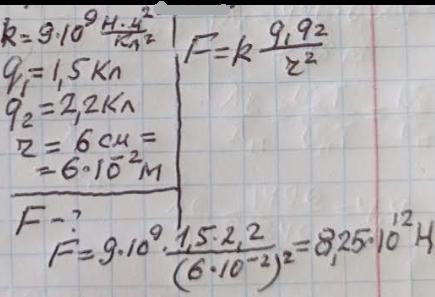 k=9·10⁹ Н·м²/Кл²
q₁=1,5 Кл
q₂=2,2 Кл
r = 6 см =
= 6·10⁻² м
F = k q₁q₂/r²
F - ?
F = 9·10⁹ · 1,5·2,2/(6·10⁻²)² = 8,25·10¹² Н